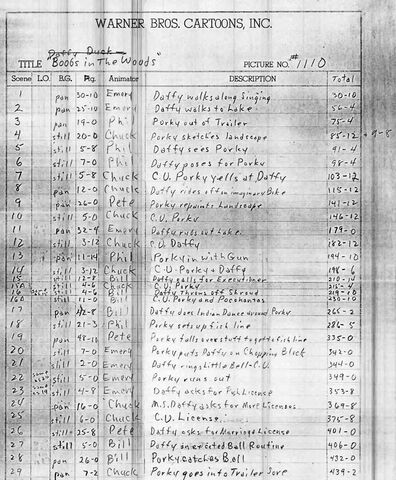 WARNER BROS. CARTOONS, INC.
Daffy Duck
TITLE "Boobs in The Woods" PICTURE NO. #1110
Scene L.O. B.G. Ftg. Animator DESCRIPTION Total
1 pan 30-10 Emery Daffy walks along Singing 30-10
2 pan 25-10 Emery Daffy walks to Lake 56-4
3 pan 19-0 Phil Porky out of Trailer 75-4
4 still 20-0 Chuck Porky sketches landscape 85-12 + 9-8
5 still 5-8 Phil Daffy sees Porky 91-4
6 still 7-0 Phil Daffy poses for Porky 98-4
7 still 5-8 Chuck C.U. Porky yells at Daffy 103-12
8 pan 12-0 Chuck Daffy rides off on imaginary Bike 115-12
9 pan 26-0 Pete Porky repaints Landscape 141-12
10 still 5-0 Chuck C.U. Porky 146-12
11 pan 32-4 Emery Daffy runs out Lake 179-0
12 still 3-12 Chuck C.U. Daffy 182-12
13 pan 11-14 Phil Porky in with Gun 194-10
14 still 3-12 Chuck C.U. Porky & Daffy 198-6
15 still 12-8 Bill Daffy calls for Executioner 210-14
15A still 4-6 Chuck C.U. Porky 215-4
16 Bill Daffy Throws off Shroud
16A still 11-0 Bill C.U. Porky and Pocahontas 230-10
17 pan 42-8 Bill Daffy does Indian Dance around Porky 265-2
18 still 21-3 Phil Porky sets up fish line 286-5
19 pan 48-11 Pete Porky falls over stuff to get to fish line 335-0
20 still 7-0 Emery Porky puts Daffy on Chopping Block 342-0
21 still 2-0 Emery Daffy rings Little Bell-C.U. 344-0
22 still 5-0 Emery Porky runs out 349-0
23 still 4-8 Emery Daffy asks for Fish License 353-8
24 pan 16-0 Chuck M.S. Daffy asks for More Licenses 369-8
25 still 6-0 Chuck C.U. License 375-8
26 still 25-8 Pete Daffy asks for Marriage License 401-0
27 still 5-0 Bill Daffy in erected Ball Routine 406-0
28 pan 26-0 Bill Porky catches Ball 432-0
29 pan 7-2 Chuck Porky goes into Trailer Sore 439-2